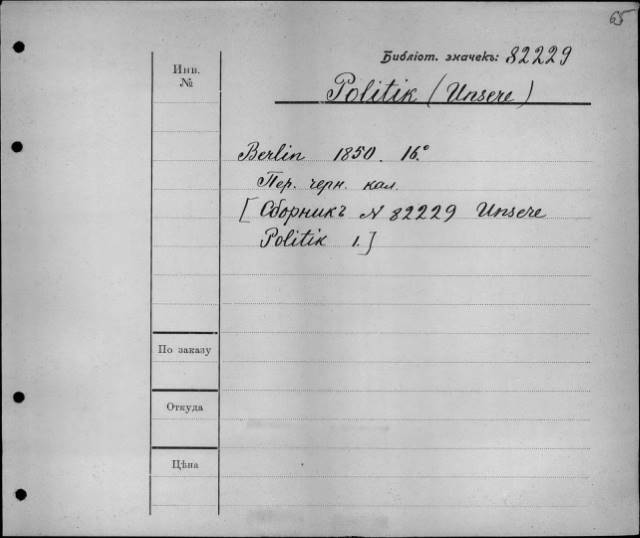 65
Библіот. значекъ: 82229
Инв.
№
Politik (Unsere)
Berlin 1850. 16°
Пер. черн. кал.
[Сборникъ N 82229 Unsere
Politik 1.]
По заказу
Откуда
Цѣна